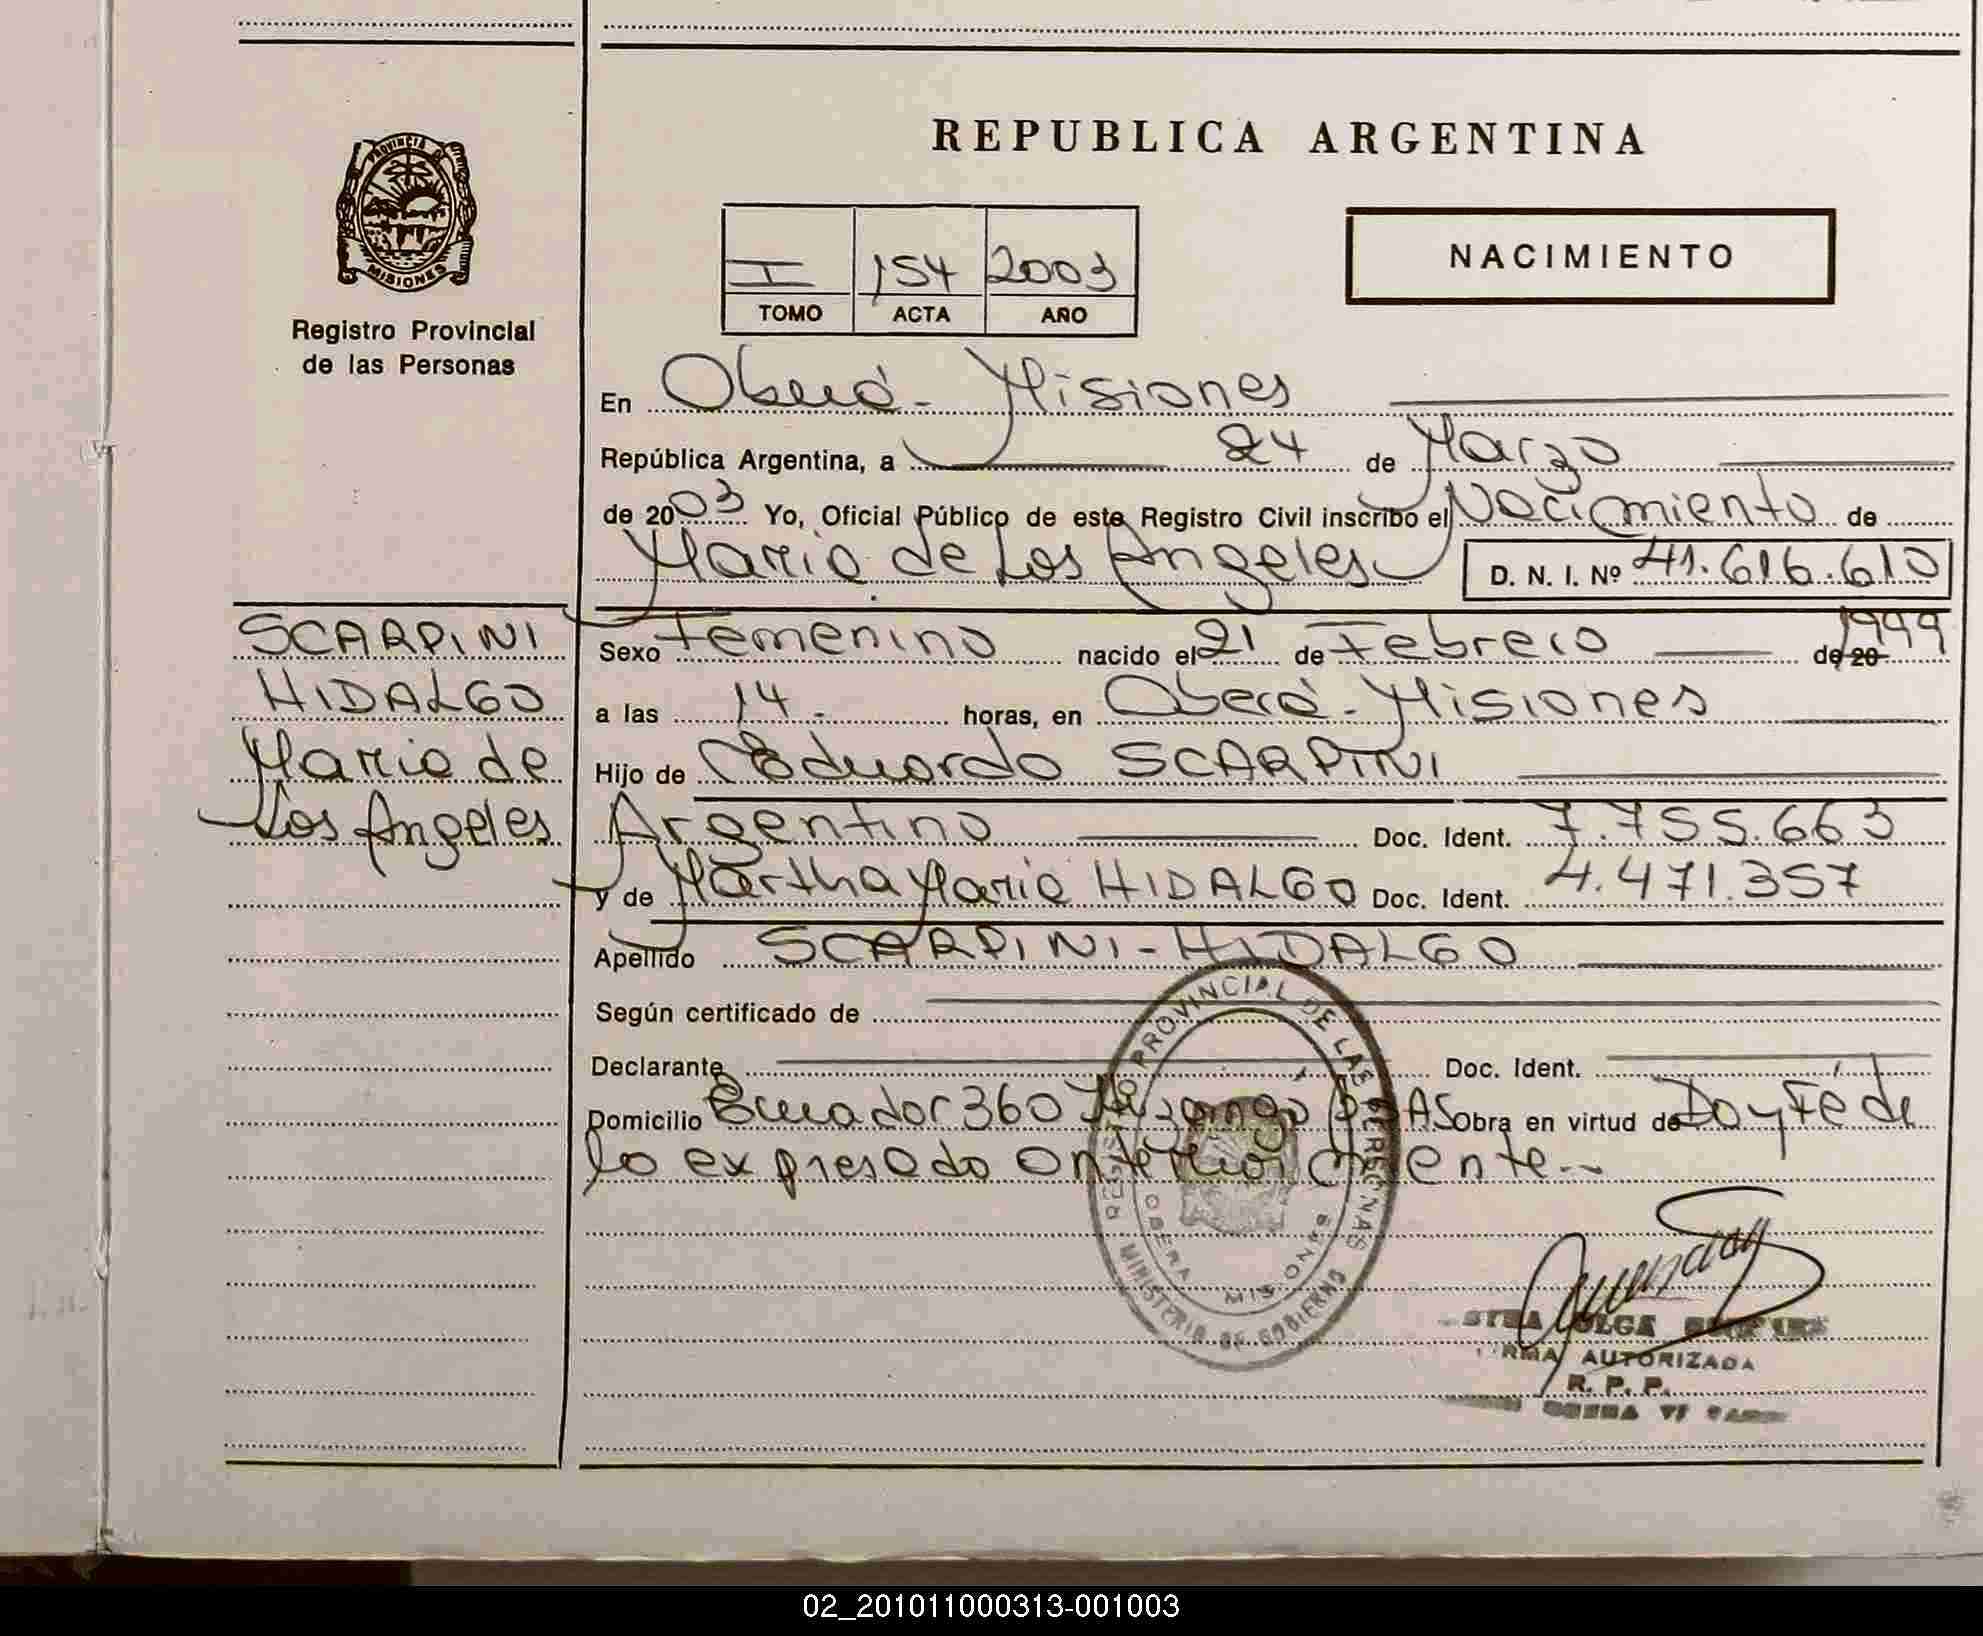 REPUBLICA ARGENTINA
PROVINCIA DE
MISIONES
Registro Provincial
de las Personas
I 154 2003
TOMO ACTA AÑO
NACIMIENTO
En Oberá - Misiones
República Argentina, a 24 de Marzo
de 2003 Yo, Oficial Público de este Registro Civil inscribo el Nacimiento de
Maria de Los Angeles D. N. I. Nº 41.616.610
SCARPINI
HIDALGO
Maria de
Los Angeles
Sexo Femenino nacido el 21 de Febrero de 20 1999
a las 14 - horas, en Oberá - Misiones
Hijo de Eduardo SCARPINI
Argentino Doc. Ident. 7.755.663
y de Martha Maria HIDALGO Doc. Ident. 4.471.357
Apellido SCARPINI - HIDALGO
Según certificado de
Declarante Doc. Ident.
Domicilio Ecuador 360 Ituzaingo BsAS Obra en virtud de Doy Fé de
lo expresado anteriormente --
REGISTRO PROVINCIAL DE LAS PERSONAS
MINISTERIO DE GOBIERNO
OBERA MISIONES
OLGA
FIRMA AUTORIZADA
R. P. P.
02_201011000313-001003